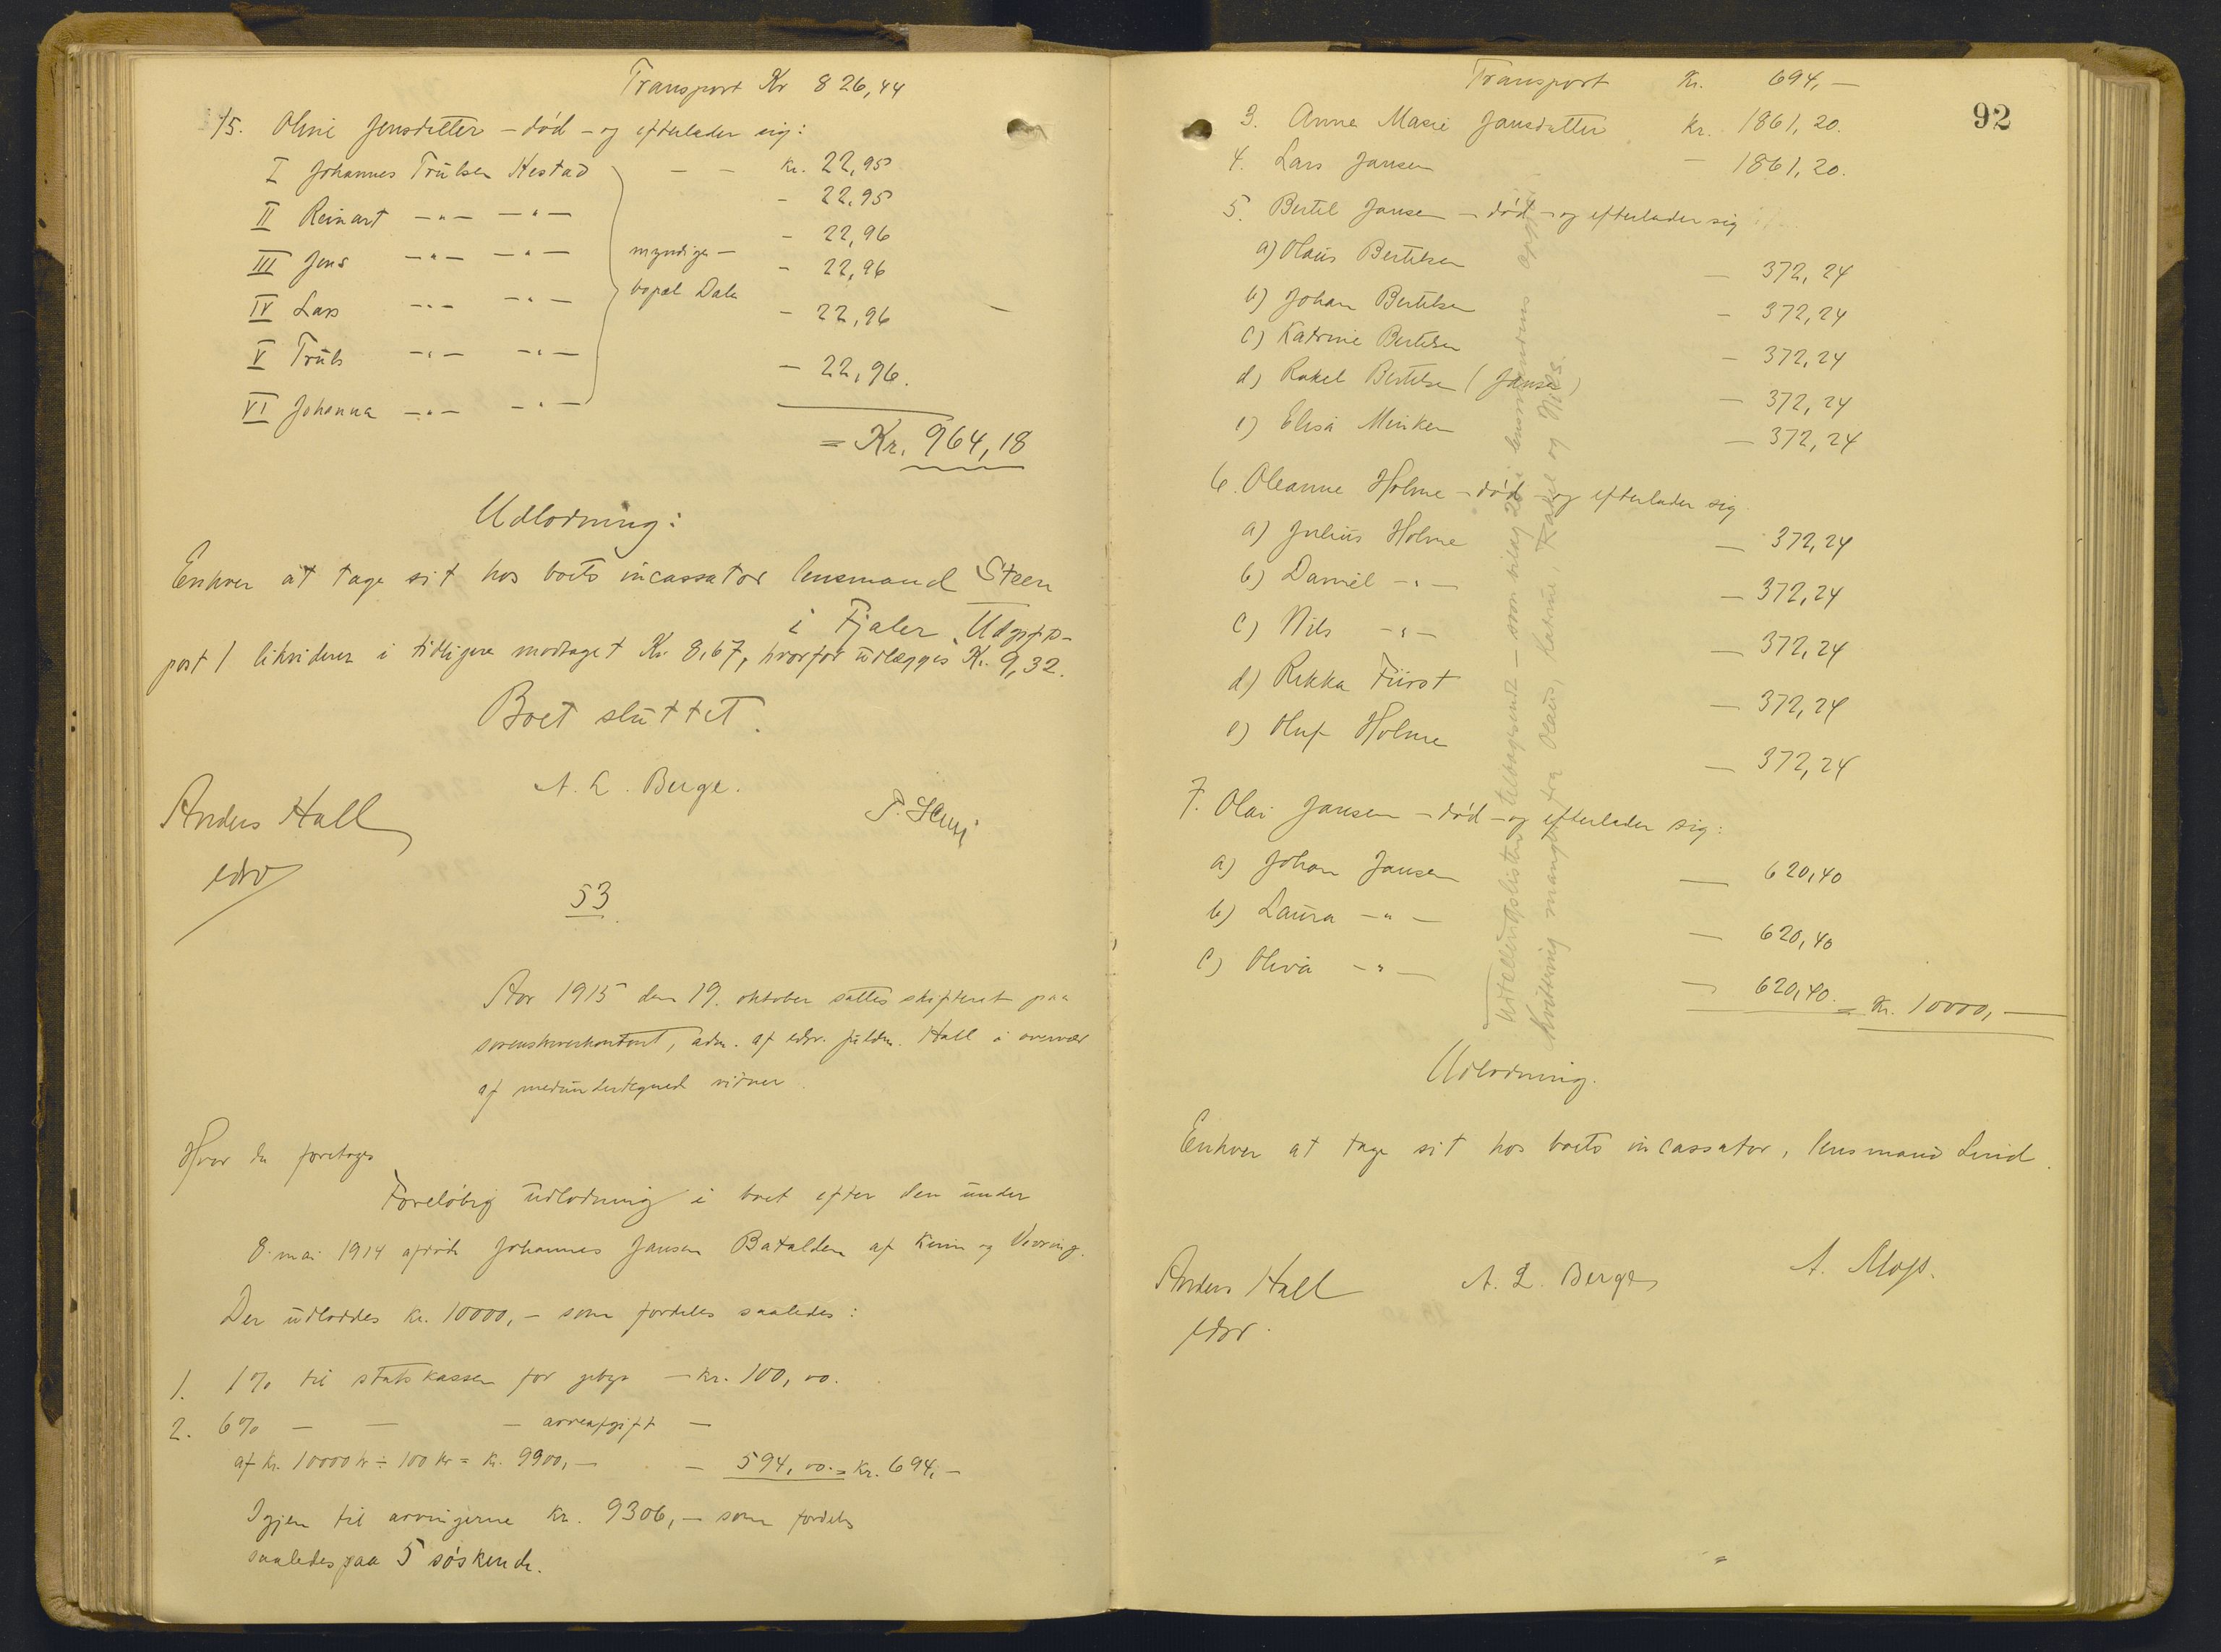 Transport Kr 826,44
15. Oline Jensdatter - död - og efterlader sig:
I Johannes Trulsen Hestad - - kr. 22,95
II Reinart -"- -"- - 22,95
III Jens -"- -"- myndige - - 22,96
- 22,96
IV Lars -"- -"- bopæl Dale - 22,96
V Truls -"- -"- - 22,96.
VI Johanna -"- -"-
= Kr. 964,18
Udlodning:
Enhver at tage sit hos boets incassator lensmand Steen
i Fjaler. Udgifts-
post 1 likviderer i tidligere modtaget Kr. 8,67, hvorfor udlægges Kr. 9,32.
Boet sluttet.
Anders Hall
edsv
A. L. Berge.
53
Aar 1915 den 19. oktober sattes skifteret paa
sorenskriverkontoret, adm. af edsv. fuldm. Hall i overvær
af medundertegnede vidner.
Hvor da foretoges
Foreløbig udlodning i boet efter den under
8. mai 1914 afdøde Johannes Jansen Batalden af Kinn og Vevring.
Der udloddes kr. 10000,- som fordeles saaledes:
1. 1% til statskassen for gebyr - kr. 100,00.
2. 6% - - - arveafgift -
af kr. 10000 kr ÷ 100 kr = kr. 9900,- - 594,00. = kr. 694,-
Igjen til arvingerne kr. 9306,- som fordeles
saaledes paa 5 søskende.
Transport Kr. 694,-
92
3. Anne Marie Jansdatter kr. 1861,20.
4. Lars Jansen - 1861,20.
5. Bertel Jansen - død - og efterlader sig
a) Olaus Bertelsen - 372,24
b) Johan Bertelsen - 372,24
c) Katrine Bertelsen - 372,24
d) Rakel Bertelsen (Jansen) - 372,24
e) Elisa Minken - 372,24
6. Oleanne Holme - død - og efterlader sig
a) Julius Holme - 372,24
b) Daniel -"- - 372,24
c) Nils -"- - 372,24
d) Rikka Fürst - 372,24
e) Oluf Holme - 372,24
7. Olai Jansen - død - og efterlader sig:
a) Johan Jansen - 620,40
b) Laura -"- - 620,40
c) Oliva -"- - 620,40. = Kr. 10000,-
Udlodning.
Enhver at tage sit hos boets incassator, lensmand Lind.
Anders Hall
edsv.
A. L. Berge
Udlodningslisten tilbagesendt - som bilag 20 i lensmandens opgjør.
Kvittering mangler fra Olaus, Katrine, Rakel og Nils.